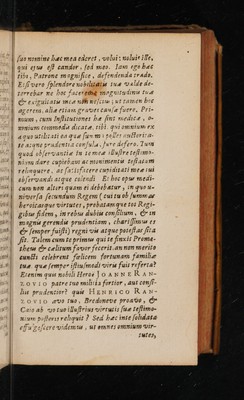 suo nomine hæc mea ederet, volui: voluit ille,
qui ejus est candor, sed mox. Jam ego hæc
tibi, Patrone magnifice, defendenda trado.
Etsi vero splendore nobilitatis tuæ valde de-
terrebar ne hoc facerem magnitudinis tuæ
& exiguitatis meæ non nescius, ut tamen hoc
agerem aliæ etiam graves causæ fuere. Pri-
mum, cum Institutiones hæ sint medicæ, o-
mnium commoda dicatæ, tibi, qui omnium ex
æquo utilitati es quasi
to atque prudentia consulis, jure defero. Tum
quod observantiæ in te meæ illustre testimo-
nium dare cupiebam ac monimentis testatum
relinquere, ut satisfacere cupiditati meæ in
observando atque colendi. Et hoc opus medi-
cum non alteri quam ei debebatur, in quo u-
niversa secundum Regem (cui tu ob summas
heroicasque virtutes, probatamque tot Regi-
gibus fidem, in rebus dubiis consilium, & in
magnis gerendis prudentiam, charissimus es
& semper fuisti) regni vis atque potestas sita
sit. Talem cum te primus qui te finxit Prome-
theus & cœlitum favor fecerit, an non merito
cuncti celebrent fœlicem fortunam familiæ
tuæ quæ semper istiusmodi viris fuit referta?
Etenim quis nobili Heroe JOANNE RAN-
ZOVIO patre tuo militia fortior, aut consi-
liis prudentior? quis HENRICO RAN-
ZOVIO avo tuo, Bredonove proavo, &
Caio ab vo tuo illustrius virtutis suæ testimo-
nium posteris reliquit? Sed hæc inte solidata
effulgescere videmus, ut omnes omnium vir-
tutes,